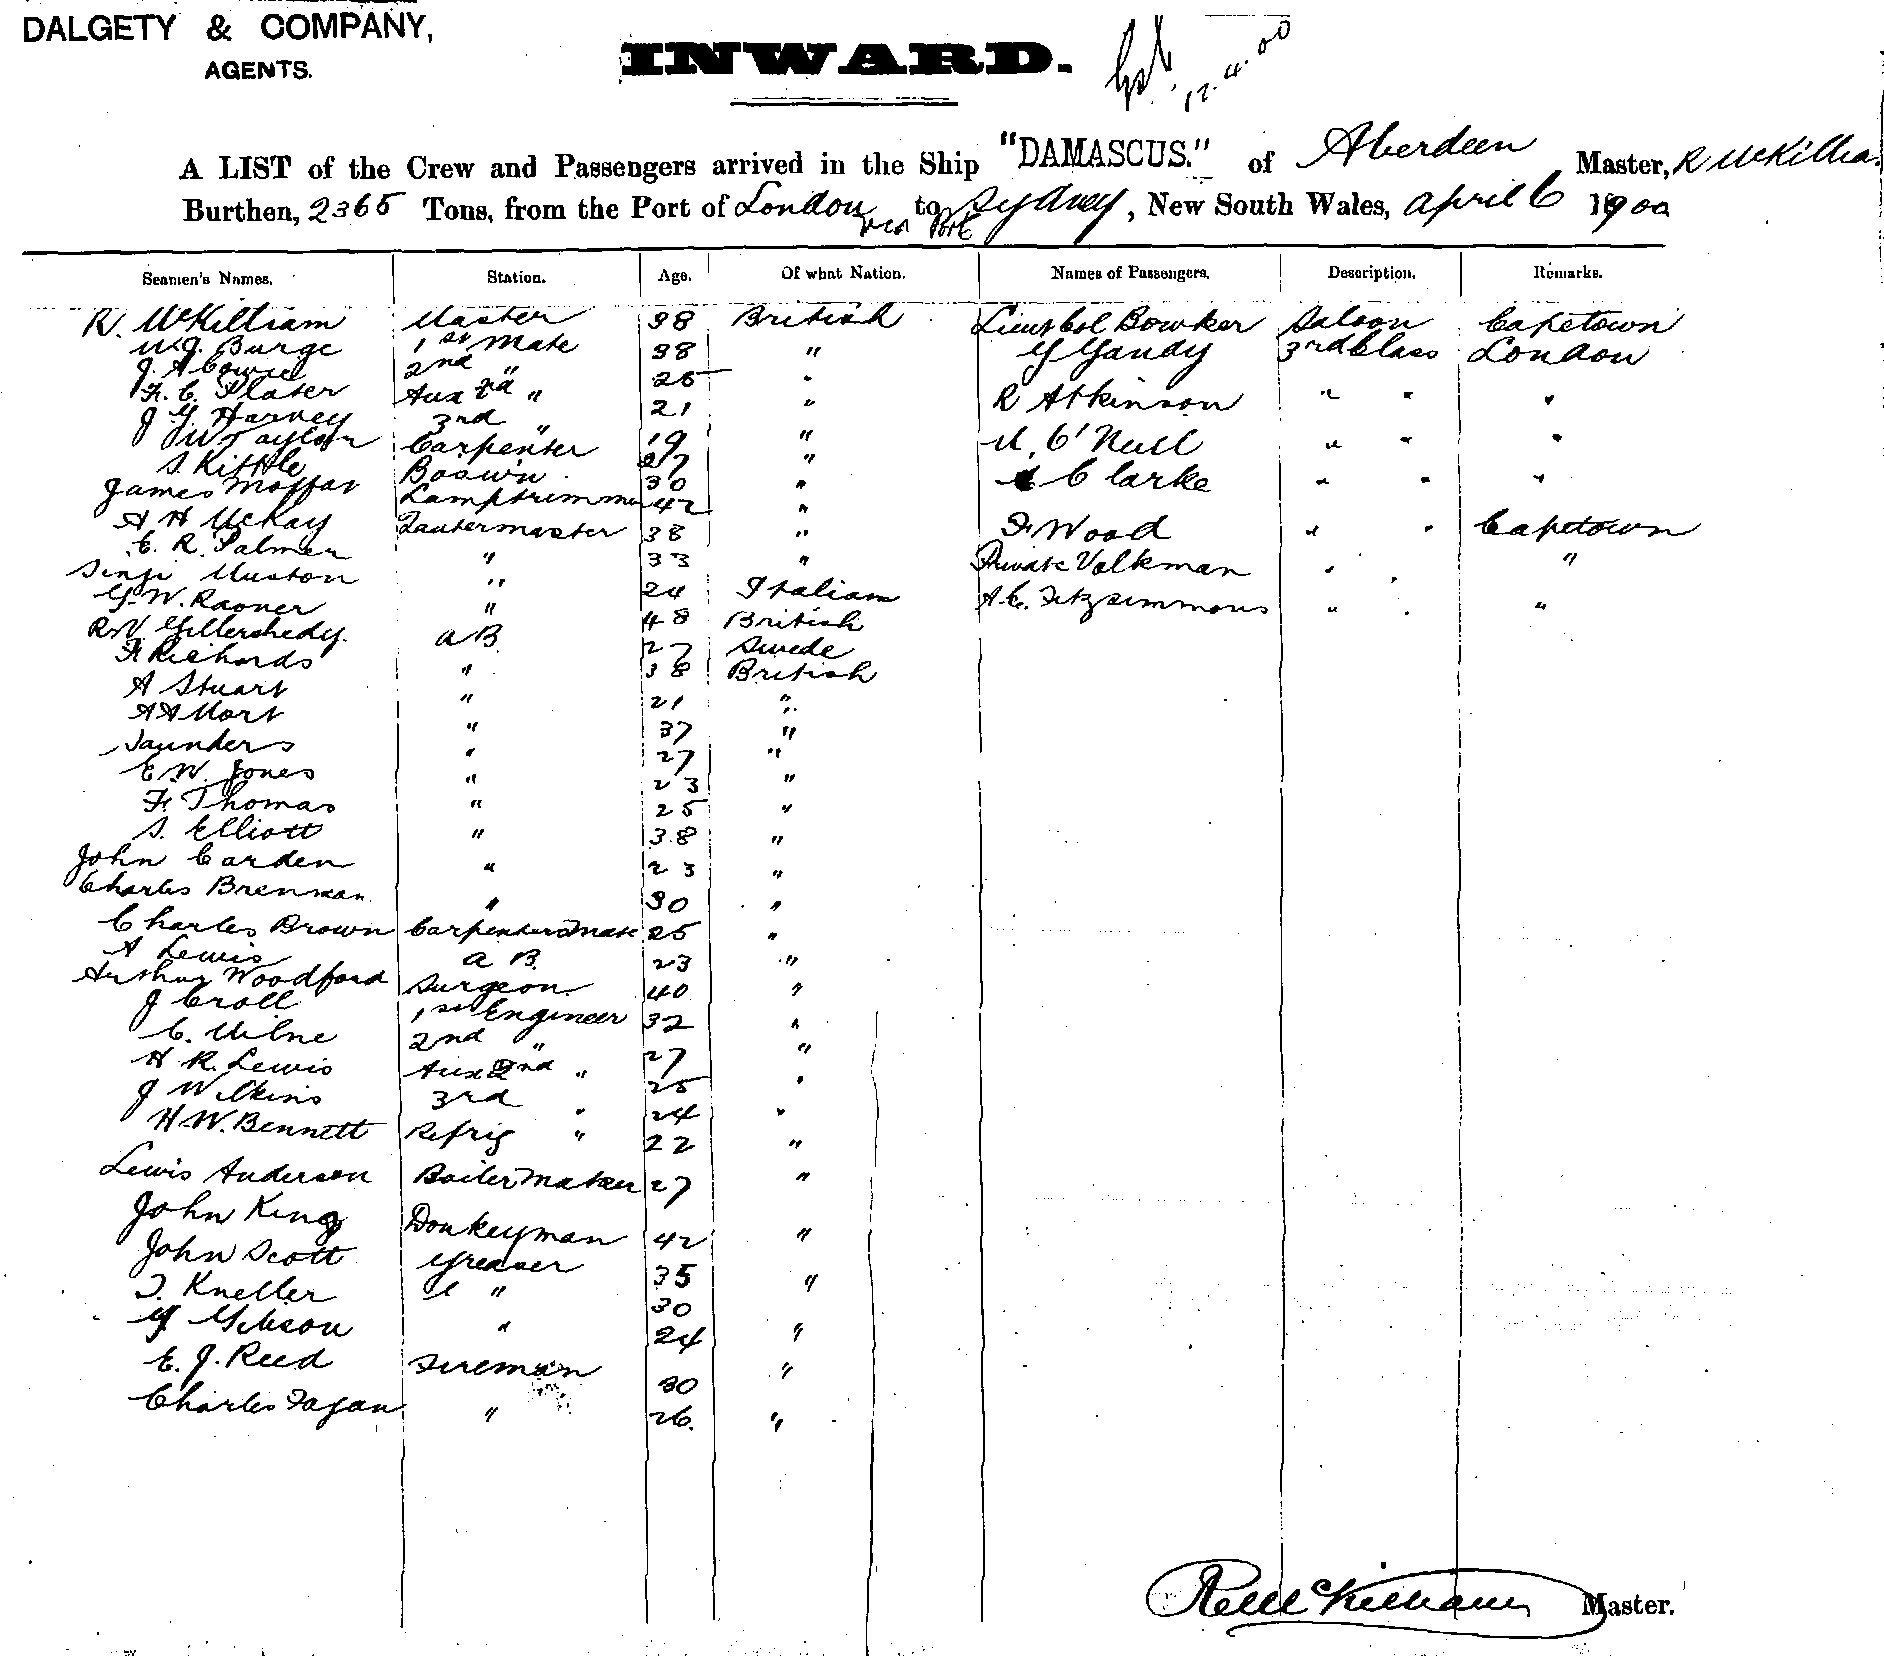 DALGETY & COMPANY,
AGENTS.
INWARD.
12.4.00
A LIST of the Crew and Passengers arrived in the Ship "DAMASCUS." of Aberdeen Master, R McKillia
Burthen, 2365 Tons, from the Port of London via Port to Sydney, New South Wales, April 6 1900
Seamen's Names. Station. Age. Of what Nation. Names of Passengers. Description. Remarks.
R. McKilliam Master 38 British Lieut Col Bowker Saloon Capetown
W.J. Burge 1st Mate 38 " G Gandy 3rd Class London
J. A Cowie 2nd " 25 "
F. C. Slater Aux 2nd " 21 " R Atkinson " " "
J G. Harvey 3rd " 19 "
J W Taylor Carpenter 27 " M. O'Neill " " "
S. Kittle Boswn 30 " C larke " " "
James Moffat Lamptrimmer 42 "
A H McKay Quartermaster 38 " F Wood " " Capetown
E. R. Palmer " 33 " Private Volkman " " "
Muston " 24 Italian A.C. Fitzsimmons " " "
G. W. " 48 British
R.V. a B 27 Swede
F Richards " 38 British
A Stuart " 21 "
A A Mort " 37 "
Saunders " 27 "
E. W. Jones " 23 "
F. Thomas " 25 "
S. Elliott " 38 "
John Carden " 23 "
Charles Brennan " 30 "
Charles Brown Carpenters Mate 25 "
A Lewis a B. 23 "
Arthur Woodford Surgeon 40 "
J Croll 1st Engineer 32 "
C. Milne 2nd " 27 "
H R. Lewis Aux 2nd " 25 "
J Wilkins 3rd " 24 "
H. W. Bennett Refrig " 22 "
Lewis Anderson Boiler Maker 27 "
John King Donkeyman 42 "
John Scott Greaser 35 "
T. Kneller " 30
G Gibson " 24 "
E. J. Reed Fireman 30 "
Charles Fagan " 26. "
R McKilliam Master.